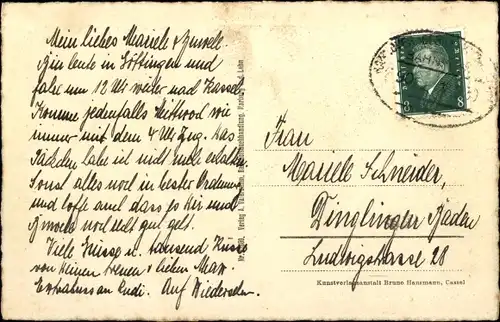 Mein liebes Mariele & Burele.
Bin heute in Göttingen und
fahre um 12 Uhr weiter nach Kassel
Komme jedenfalls Mittwoch wie
immer mit dem 4 Uhr Zug. Das
habe ich nicht mehr erhalten
Sonst alles noch in bester Ordnung
und hoffe auch dass es Dir und
noch recht gut geht.
Viele Grüsse u. tausend Küsse
von Deinem treuen & lieben Max.
Auf Wiedersehn.
Frau
Mariele Schneider,
Dinglingen Baden
Ludwigstrasse 28
Kunstverlagsanstalt Bruno Hansmann, Cassel
8 8